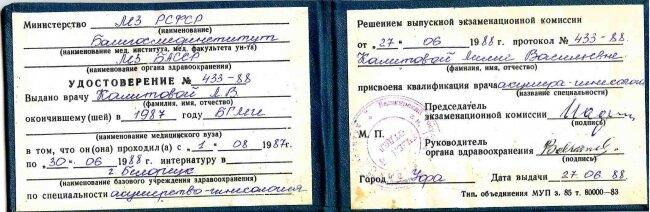 Министерство МЗ РСФСР
(наименование)
Башгосмединститут
(наименование мед. института, мед. факультета ун-та)
МЗ БАССР
(наименование органа здравоохранения)
УДОСТОВЕРЕНИЕ № 433-88
Выдано врачу Калитовой Л В
(фамилия, имя, отчество)
окончившему(шей) в 1987 году БГМИ
(наименование медицинского вуза)
в том, что он(она) проходил(а) с 1 08 1987г.
по 30 06 1988 г. интернатуру в
г. Белорецк
(наименование базового учреждения здравоохранения)
по специальности акушерство-гинекология
Решением выпускной экзаменационной комиссии
от "27" 06 1988 г. протокол № 433-88.
Калитовой Лилии Васильевне
(фамилия, имя, отчество)
присвоена квалификация врача акушера-гинеколога
(название специальности)
Председатель
экзаменационной комиссии
(подпись)
М. П.
Руководитель
органа здравоохранения
(подпись)
Город Уфа Дата выдачи 27 06. 88
Тип. объединения МУП з. 85 т. 80000—83